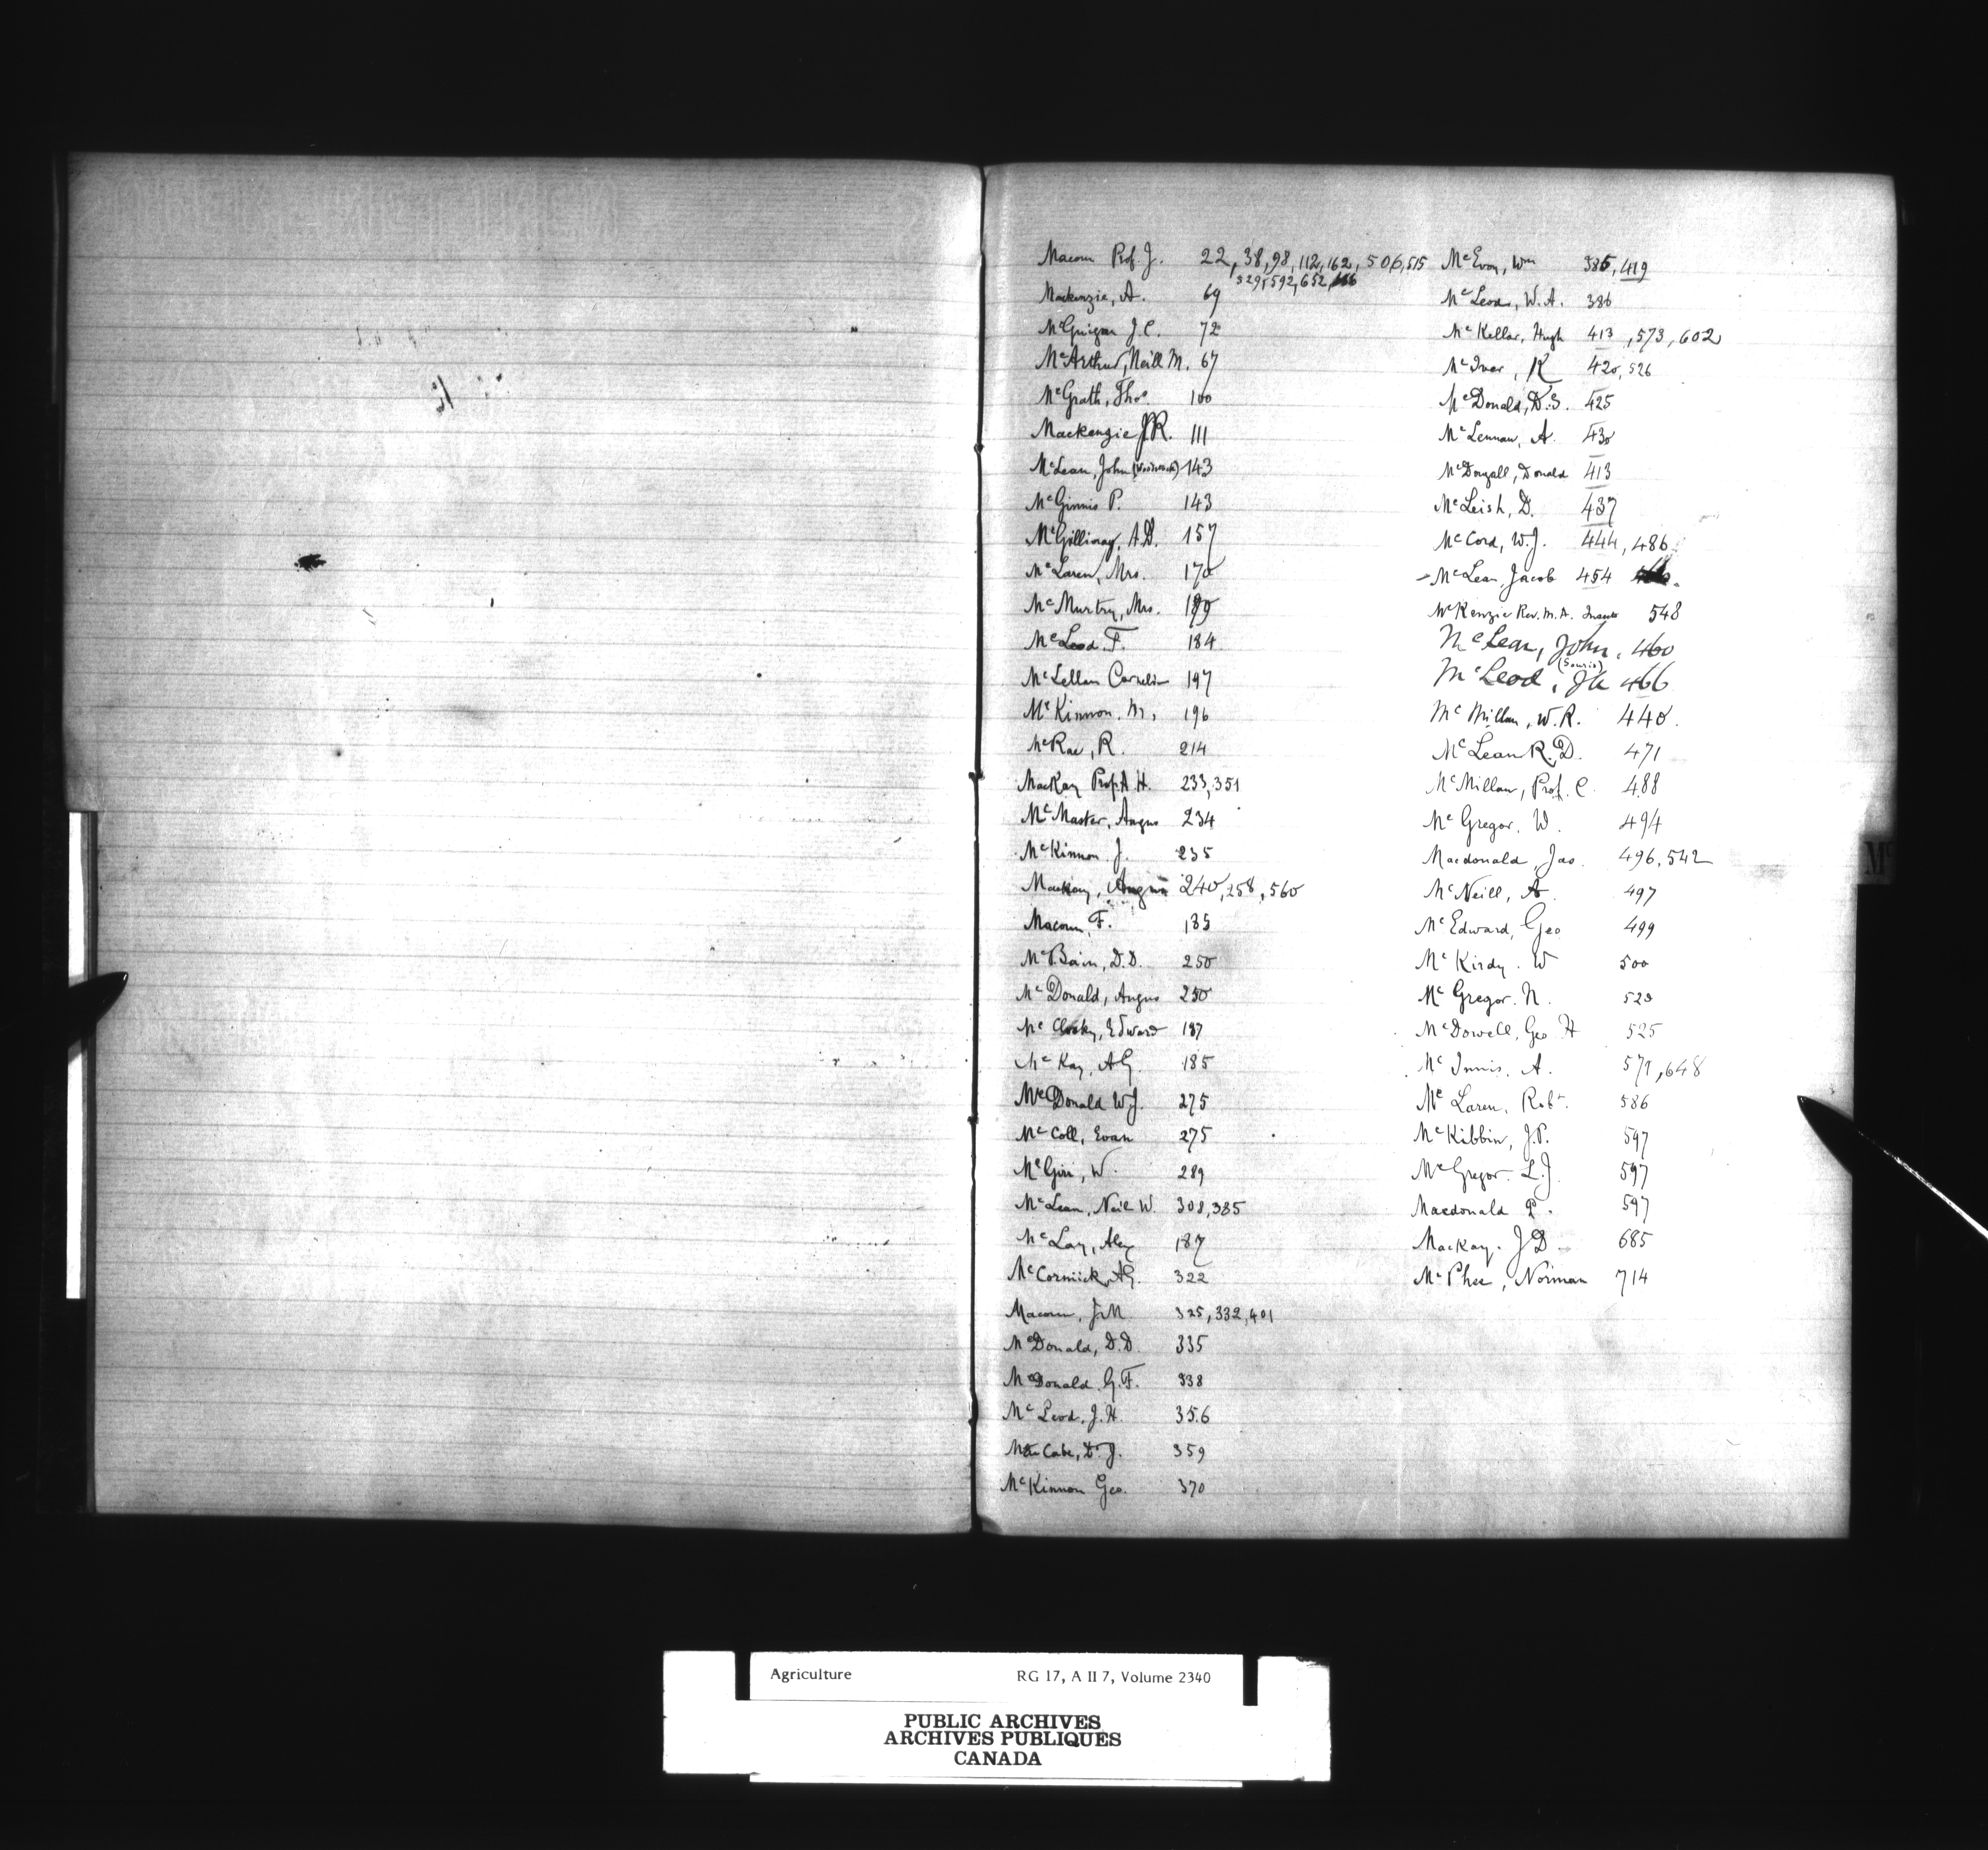 Macoun Prof. J. 22, 38, 98, 112, 162, 506, 515
529, 592, 652,
Mackenzie, A. 69
McGuigan J.C. 72
McArthur, Neill M. 67
McGrath, Thos. 100
Mackenzie J.R. 111
McLean, John 143
McGinnis P. 143
McGillivray, A.D. 157
McLaren, Mrs. 170
McMurtry, Mrs. 189
McLeod F. 184
McLellan Cornelius 197
McKinnon, M. 196
McRae, R. 214
MacKay Prof. A.H. 233, 351
McMaster, Angus 234
McKinnon J. 235
Mackay, Angus 240, 258, 560
Macoun, F. 185
McBain, D.D. 250
McDonald, Angus 250
Mc Edward 187
McKay, A.G. 185
McDonald W.J. 275
McColl, Evan 275
McGirr, W. 289
McLean, Neil W. 308, 385
McLay, Alex 187
McCormick, A.G. 322
Macoun, J.M. 325, 332, 401
McDonald, D.D. 335
McDonald G.F. 338
McLeod, J.H. 356
McCabe, D.J. 359
McKinnon Geo. 370
McEvoy, Wm 385, 419
McLeod, W.A. 386
McKellar, Hugh 413, 573, 602
McIver, K 420, 526
McDonald, D.S. 425
McLennan, A. 430
McDougall, Donald 413
McLeish, D. 437
McCord, W.J. 444, 486
McLean, Jacob 454
McKenzie Rev. M.A. Insects 548
McLean, John, 460
(Souris)
McLeod, J 466
McMillan, W.R. 440.
McLean R.D. 471
McMillan, Prof. C. 488
McGregor, W. 494
Macdonald, Jas. 496, 542
McNeill, A. 497
McEdward, Geo 499
McKirdy. W 500
McGregor. N. 523
McDowell, Geo H 525
McInnis, A. 571, 648
McLaren, Robt. 586
McKibbin, J.P. 597
McGregor L.J. 597
Macdonald P. 597
MacKay. J D 685
McPhee, Norman 714
Mc
Agriculture RG 17, A II 7, Volume 2340
PUBLIC ARCHIVES
ARCHIVES PUBLIQUES
CANADA